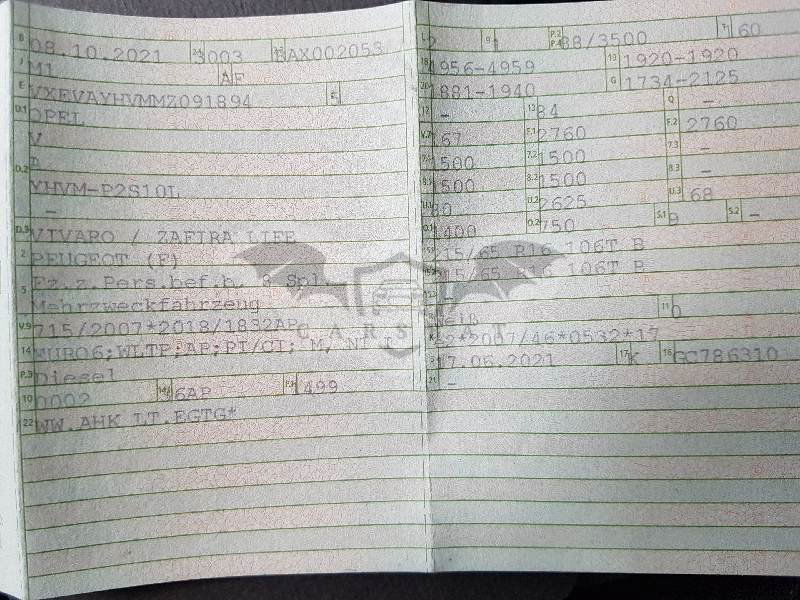 B 08.10.2021 2.1 3003 2.2 BAX002053
J M1 4 AF
E VXEVAYHVMMZ091894 3 5
D.1 OPEL
V
D.2 D
YHVM-P2S10L
-
D.3 VIVARO / ZAFIRA LIFE
2 PEUGEOT (F)
5 Fz.z.Pers.bef.b. 8 Spl.
Mehrzweckfahrzeug
V.9 715/2007*2018/1832AP
14 EURO6;WLTP;AP;PI/CI; M, N1 I
P.3 Diesel
10 0002 14.1 36AP P.1 1499
22 WW.AHK LT.EGTG*
L 2 9 1 P.2 P.4 88/3500 T 160
18 1956-4959 19 1920-1920
20 1881-1940 G 1734-2125
12 - 13 84 Q -
V.7 167 F.1 2760 F.2 2760
7.1 1500 7.2 1500 7.3 -
8.1 1500 8.2 1500 8.3 -
U.1 80 U.2 2625 U.3 68
O.1 1400 O.2 750 S.1 9 S.2 -
15.1 215/65 R16 106T B
15.2 215/65 R16 106T B
-
R weiß 11 0
K e2*2007/46*0532*17
6 17.06.2021 17 K 16 GC786310
21 -
CARS BAT